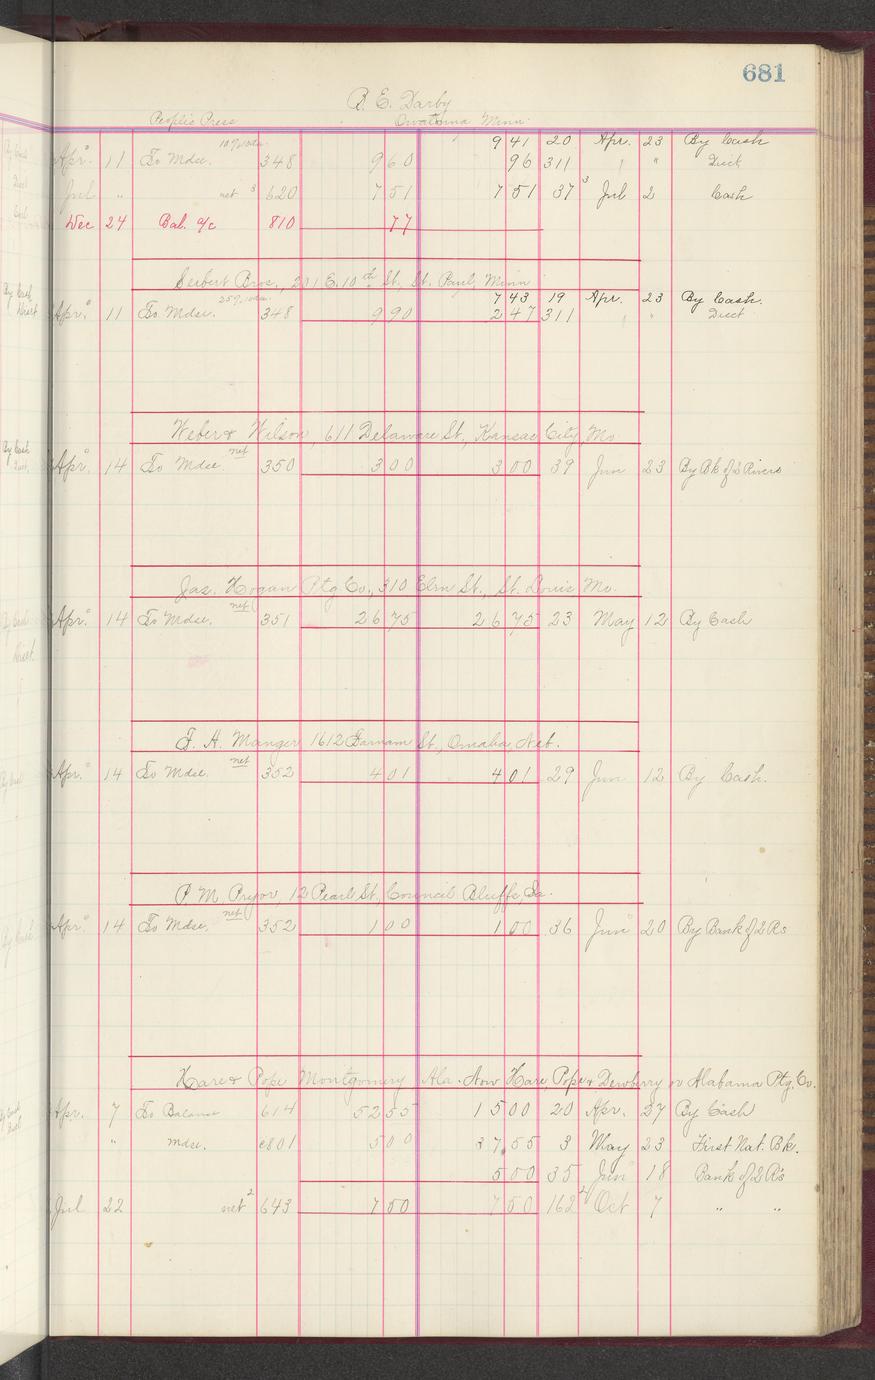 681
R. E. Darby
People's Press Owatonna Minn.
9 41 20 Apr. 23 By Cash
Apr. 11 To Mdse. 348 9 60 96 311 " Disct
Jul " net 3 620 7 51 7 51 37 3 Jul 2 Cash
Dec 24 Bal. a/c 810 77
Seibert Bros., 201 E. 10th St., St. Paul, Minn
7 43 19 Apr. 23 By Cash.
Apr. 11 To Mdse. 348 9 90 2 47 311 " Disct
Weber & Wilson, 611 Delaware St., Kansas City, Mo
Apr. 14 To Mdse. net 350 3 00 3 00 39 Jun 23 By Bk of 2 Rivers
Jas. Hogan Ptg Co., 310 Elm St., St. Louis Mo.
Apr. 14 To Mdse. net 351 26 75 26 75 23 May 12 By Cash
F. A. Manger 1612 Farnam St., Omaha, Neb.
Apr. 14 To Mdse. net 352 4 01 4 01 29 Jun 12 By Cash.
P. M. Pryor, 12 Pearl St., Council Bluffs, Ia.
Apr. 14 To Mdse. net 352 1 00 1 00 36 Jun 20 By Bank of 2 Rs
Hare & Pope Montgomery Ala. Now Hare, Pope & Dewberry or Alabama Ptg. Co.
Apr. 7 To Balance 614 52 55 15 00 20 Apr. 27 By Cash
" Mdse. c801 5 00 37 55 3 May 23 First Nat. Bk.
5 00 35 Jun 18 Bank of 2 R's
Jul 22 net 2 643 7 50 7 50 162 2 Oct 7 " "